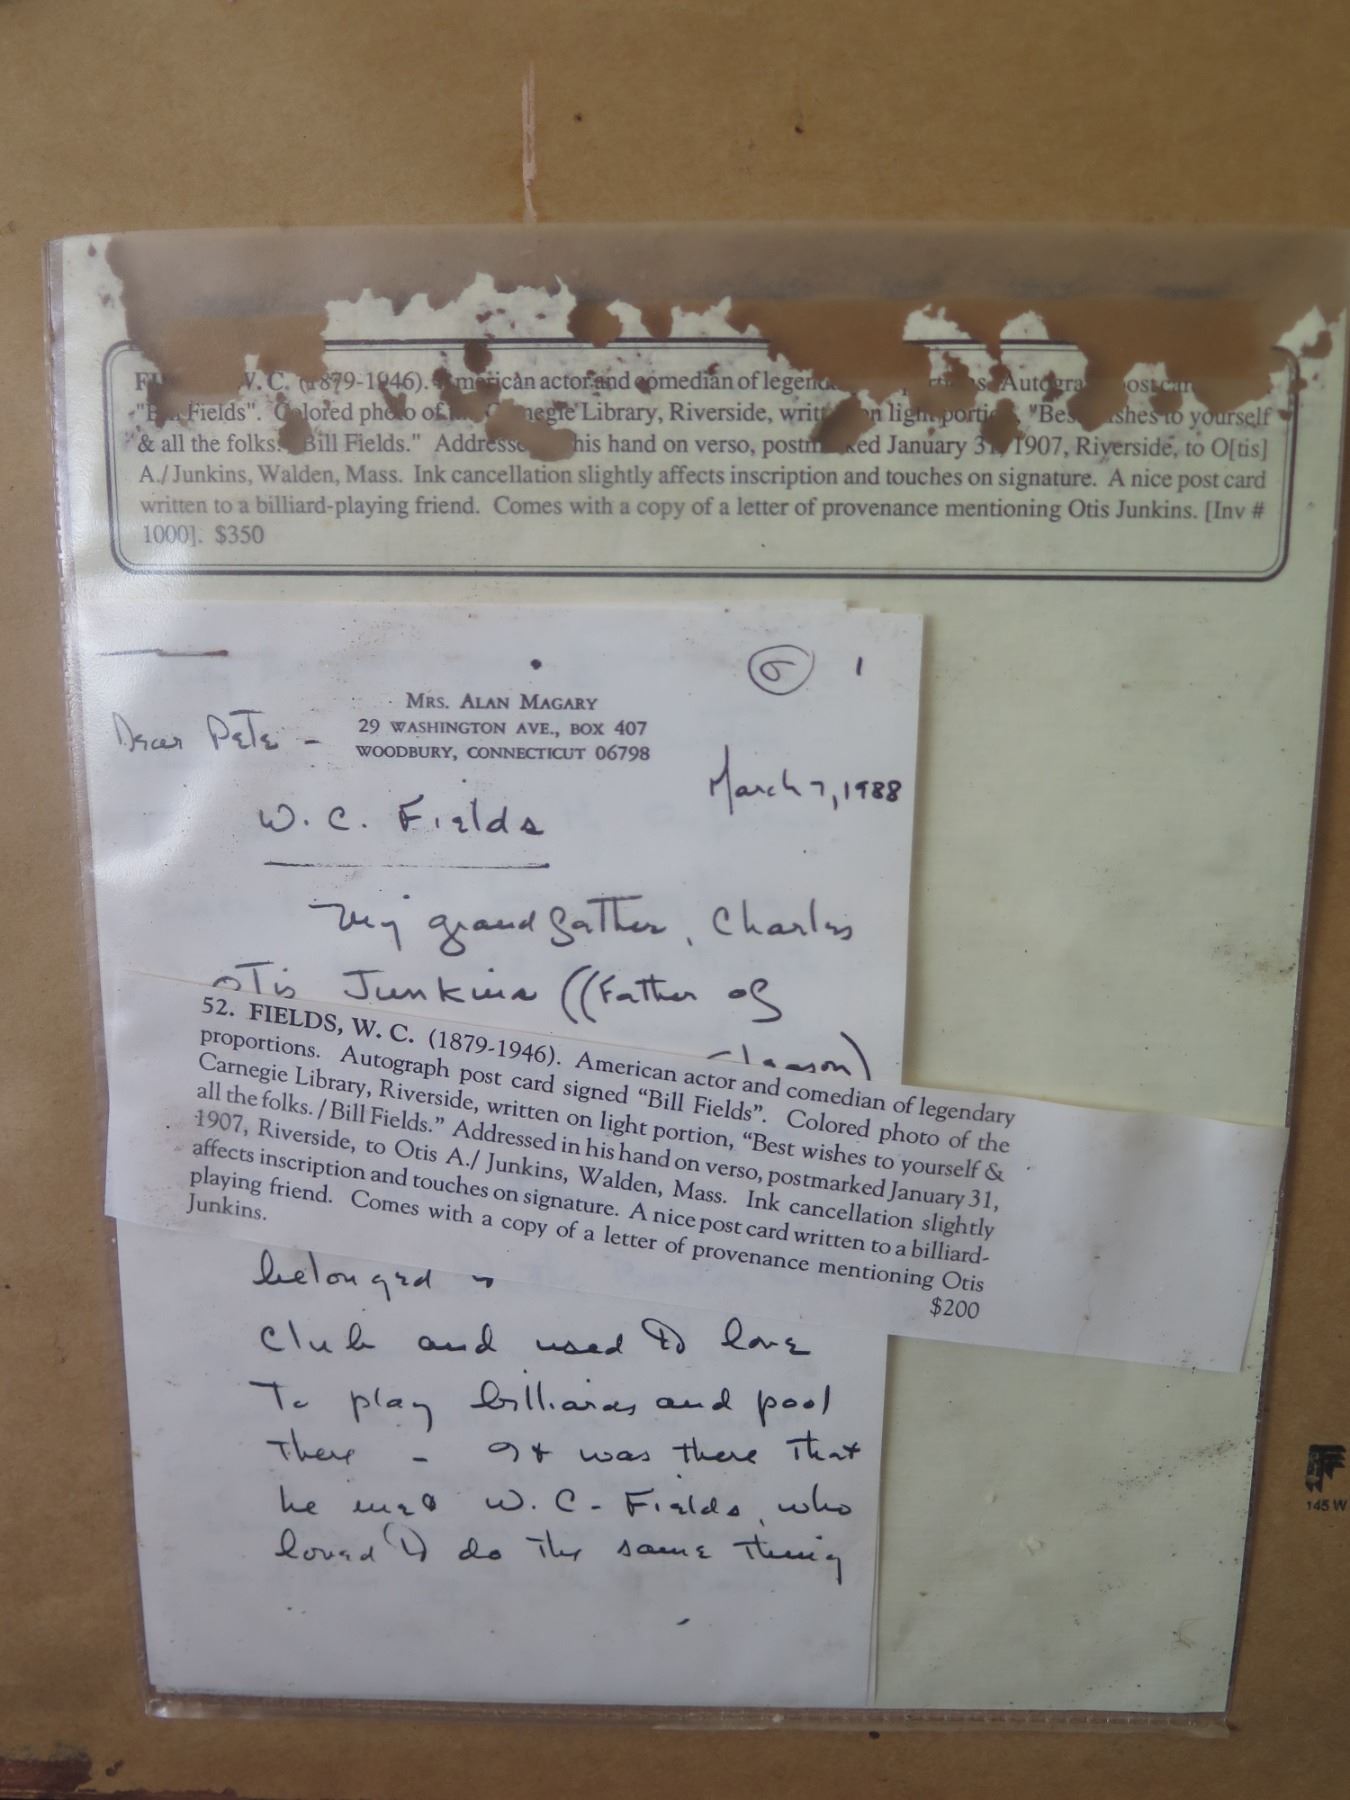 W. C. (1879-1946). American actor and comedian of Autogra
"Bill Fields". Colored photo of Carnegie Library, Riverside, on light "Best wishes to yourself
& all the folks. Bill Fields." Addressed his hand on verso, postmarked January 31, 1907, Riverside, to O[tis]
A./ Junkins, Walden, Mass. Ink cancellation slightly affects inscription and touches on signature. A nice post card
written to a billiard-playing friend. Comes with a copy of a letter of provenance mentioning Otis Junkins. [Inv #
1000]. $350
6 1
MRS. ALAN MAGARY
29 WASHINGTON AVE., BOX 407
WOODBURY, CONNECTICUT 06798
Dear Pete -
March 7, 1988
W. C. Fields
My grandfather, Charles
Otis Junkins ((Father of
52. FIELDS, W. C. (1879-1946). American actor and comedian of legendary
proportions. Autograph post card signed “Bill Fields”. Colored photo of the
Carnegie Library, Riverside, written on light portion, “Best wishes to yourself &
all the folks. / Bill Fields.” Addressed in his hand on verso, postmarked January 31,
1907, Riverside, to Otis A./ Junkins, Walden, Mass. Ink cancellation slightly
affects inscription and touches on signature. A nice post card written to a billiard-
playing friend. Comes with a copy of a letter of provenance mentioning Otis
Junkins.
$200
belonged
club and used to love
To play billiards and pool
There - It was there that
he met W. C. Fields, who
loved to do the same thing
145 W